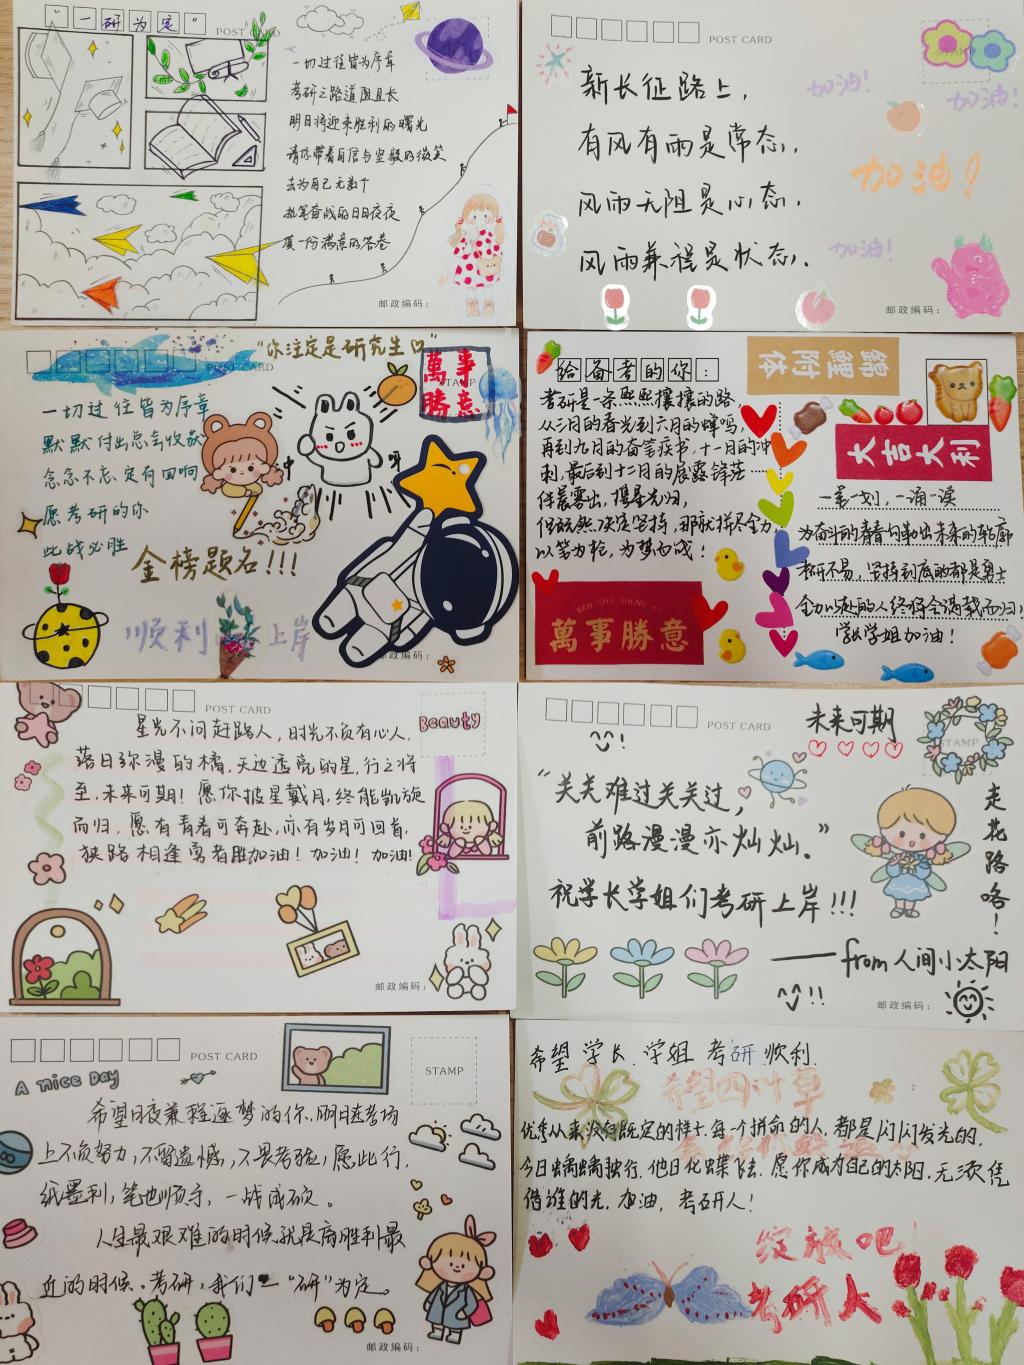 "一研为定"
POST CARD
一切过往皆为序章
考研之路道阻且长
明日将迎来胜利的曙光
请你带着自信与坚毅的微笑
去为自己无数个
热笔奋战的日日夜夜
填一份满意的答卷
邮政编码：
POST CARD
STAMP
新长征路上，
有风有雨是常态，
风雨无阻是心态，
风雨兼程是状态。
加油！
加油！
加油！
加油！
邮政编码：
"你注定是研究生"
POST CARD
萬事
勝意
STAMP
一切过往皆为序章
默默付出总会收获
念念不忘，定有回响
愿考研的你
此战必胜
金榜题名!!!
冲呀
顺利上岸
邮政编码：
给备考的你：
錦鯉
附体
考研是一条熙熙攘攘的路，
从三月的春光到六月的蝉鸣，
再到九月的奋笔疾书，十一月的冲
刺，最后到十二月的展露锋芒
伴晨雾出，携星光归，
你既然决定坚持，那就拼尽全力，
以笔为枪，为梦而战！
WAN SHI SHENG YI
萬事勝意
大吉大利
一笔一划，一诵一读
为奋斗的青春勾勒出未来的轮廓
考研不易，坚持到底的都是勇士
全力以赴的人终将会满载而归，
学长学姐加油！
POST CARD
Beauty
星光不问赶路人，时光不负有心人，
落日弥漫的橘，天边透亮的星，行之将
至，未来可期！愿你披星戴月，终能凯旋
而归，愿有青春可奔赴，亦有岁月可回首，
狭路相逢勇者胜加油！加油！加油！
邮政编码：
POST CARD
未来可期
STAMP
"关关难过关关过，
前路漫漫亦灿灿。"
祝学长学姐们考研上岸!!!
走花路咯！
——from 人间小太阳
邮政编码：
POST CARD
STAMP
A nice Day
希望日夜兼程逐梦的你，明日考场
上不负努力，不留遗憾，不畏考验，愿此行，
纸墨利，笔也顺িতে，一战成硕。
人生最艰难的时候就是离胜利最
近的时候。考研，我们一"研"为定。
邮政编码：
希望学长、学姐考研顺利。
希望四叶草
优秀从来没有既定的样土，每一个拼命的人，都是闪闪发光的，
今日蝺蝺独行，他日化蝶飞去，愿你成为自己的太阳，无须凭
借谁的光。加油，考研人！
绽放吧
考研人